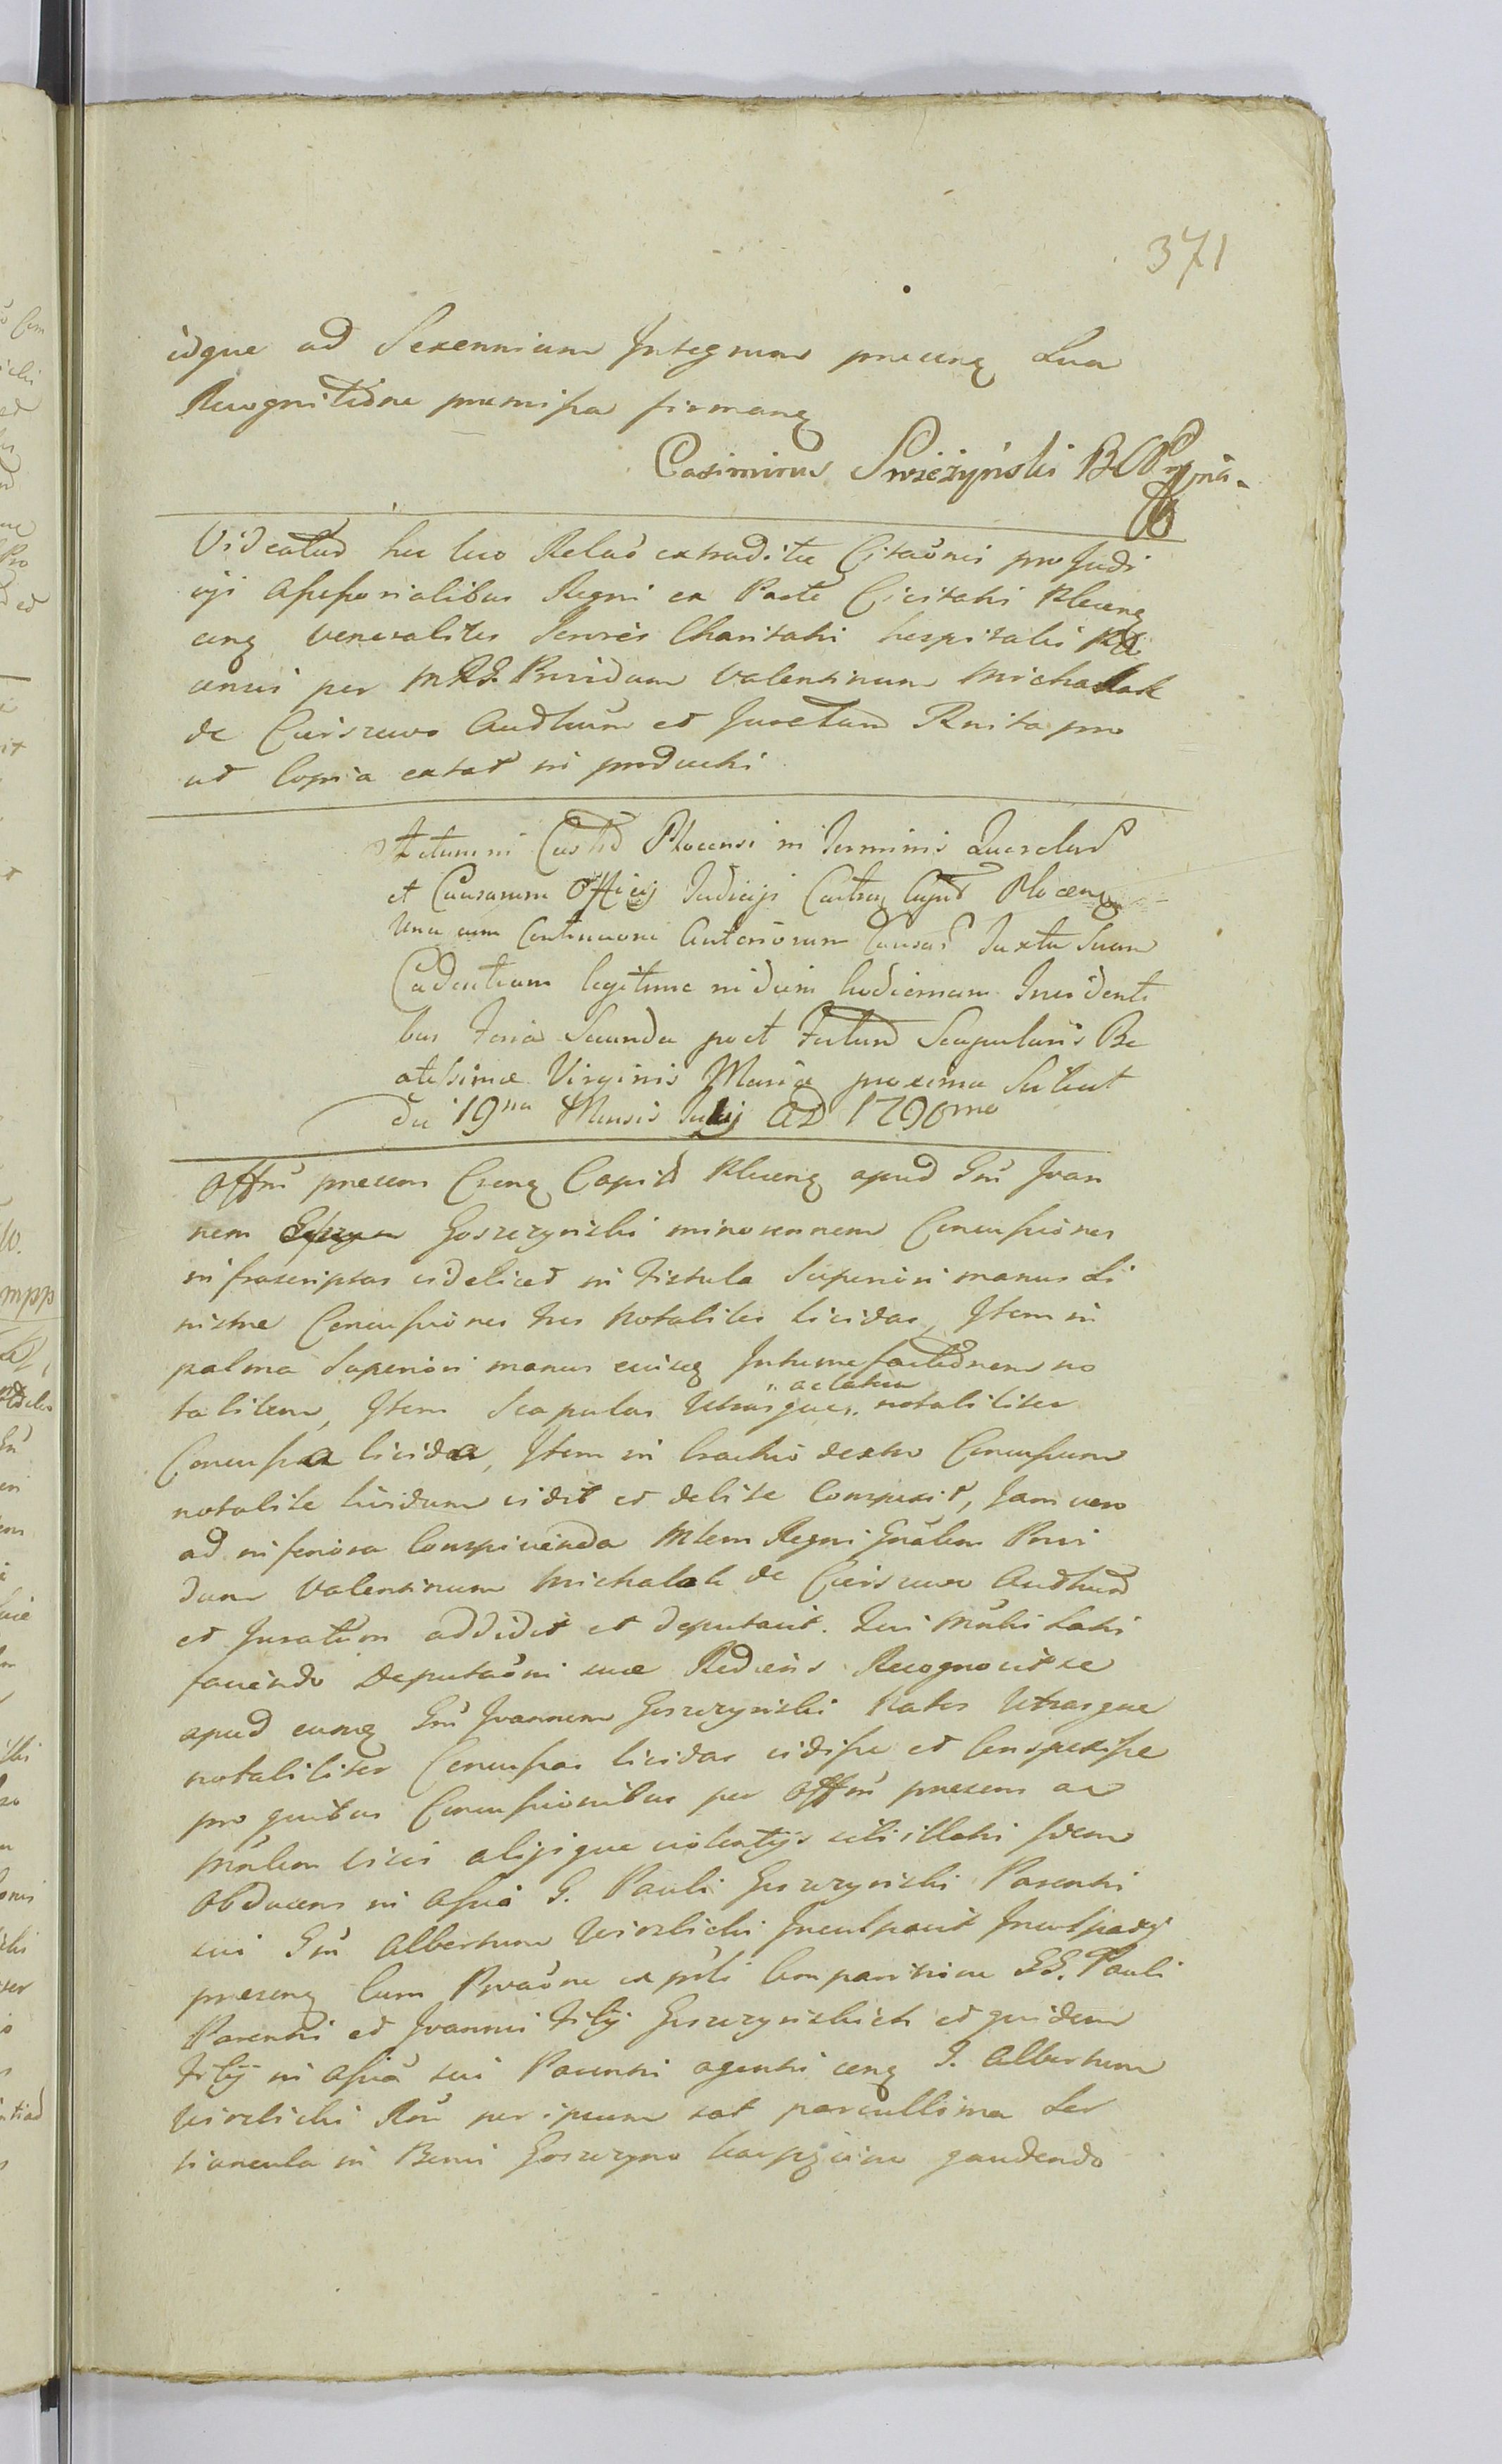 371
idque ad Sexennium Integrum precenq sua
Recognitione premissa firmanq
Casimirus Swieżyński BCP mpia
Videatur hic loco Relaō extraditae Citaōnis pro Judi
cijs Assessorialibus Regni ex Parte Civitatis Plocenq
cenq venerabiles Sorores Charitatis hospitalis Plo
censis per MRG. Providum Valentinum Michalak
de Cierszewo Authum et Juratum Rnita pro
ut Copia extat in productis
Actum in Castro Plocensi in Terminis Querelar
et Causarum Officij Judicijs Castren Capnt Plocenq
Una cum Continuaone Anteriorum Causar Juxta Suam
Cadentiam legitime in diem hodiernam Incidenti
bus Feria Secunda post Festum Scapularis Be
atissimae Virginis Mariae proxima Scilicet
die 19na Mensis Julij AD 1790mo
Offm precens Crenq Capitd Plocenq apud Gm Joan
nem Goszczynski minorennem Concussiones
infrascriptas videlicet in Fistula Superiori manus Si
nistrae Concussiones tres notabiles lividas, Item in
palma Superiori manus eiusq Intumefactionem no
tabilem, Item Scapulas Utrasque notabiliter
Concussa livida, Item in brachio dextro Concussum
notabile lividum vidit et debite Conspexit, Jam vero
ad inferiora Conspicienda Mlem Regni Gnalem Provi
dum Valentinum Michalak de Cierszewo Authum
et Juratum addidit et deputavit. Qui Mnlis satis
faciendo Deputaōni suae Rediens Recognovit se
apud eunq Gm Joannem Goszczynski Nates Utrasque
notabiliter Concussas lividas vidisse et Conspexisse
pro quibus Concussionibus per Offm precens ac
Mnlem visis alijsque violentijs sibi illatis Idem
Obducens in Assiā G. Pauli Goszczynski Parentis
sui Gm Albertum Wierzbicki Inculpavit Inculpatq
precenq Cum Pvaōne ex prti Comparitione GG. Pauli
Parentis et Joannis Filij Goszczynskich et quidem
Filij in Assiā sui Parentis agentis cenq G. Albertum
Wierzbicki Rm per ipsum sat
in Bonis Goszczyno gaudendo